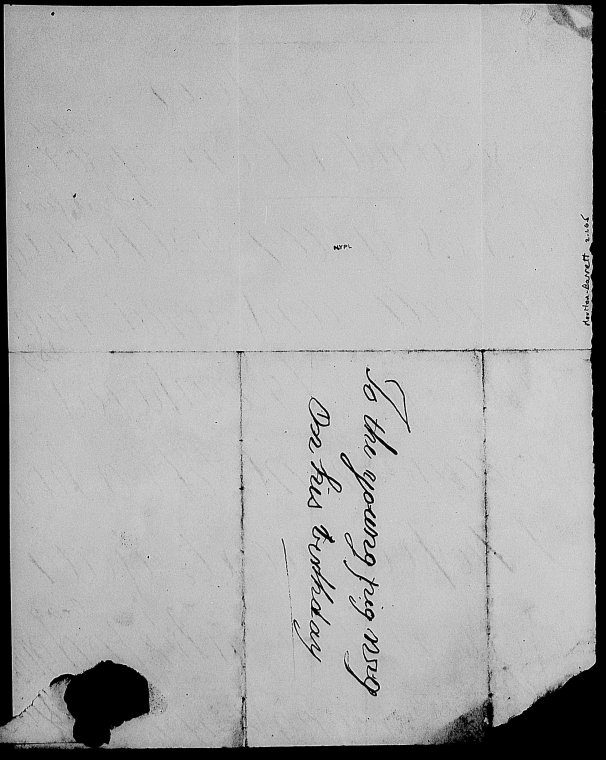 To the young pig wig
On his birthday
NYPL
Moulton-Barrett